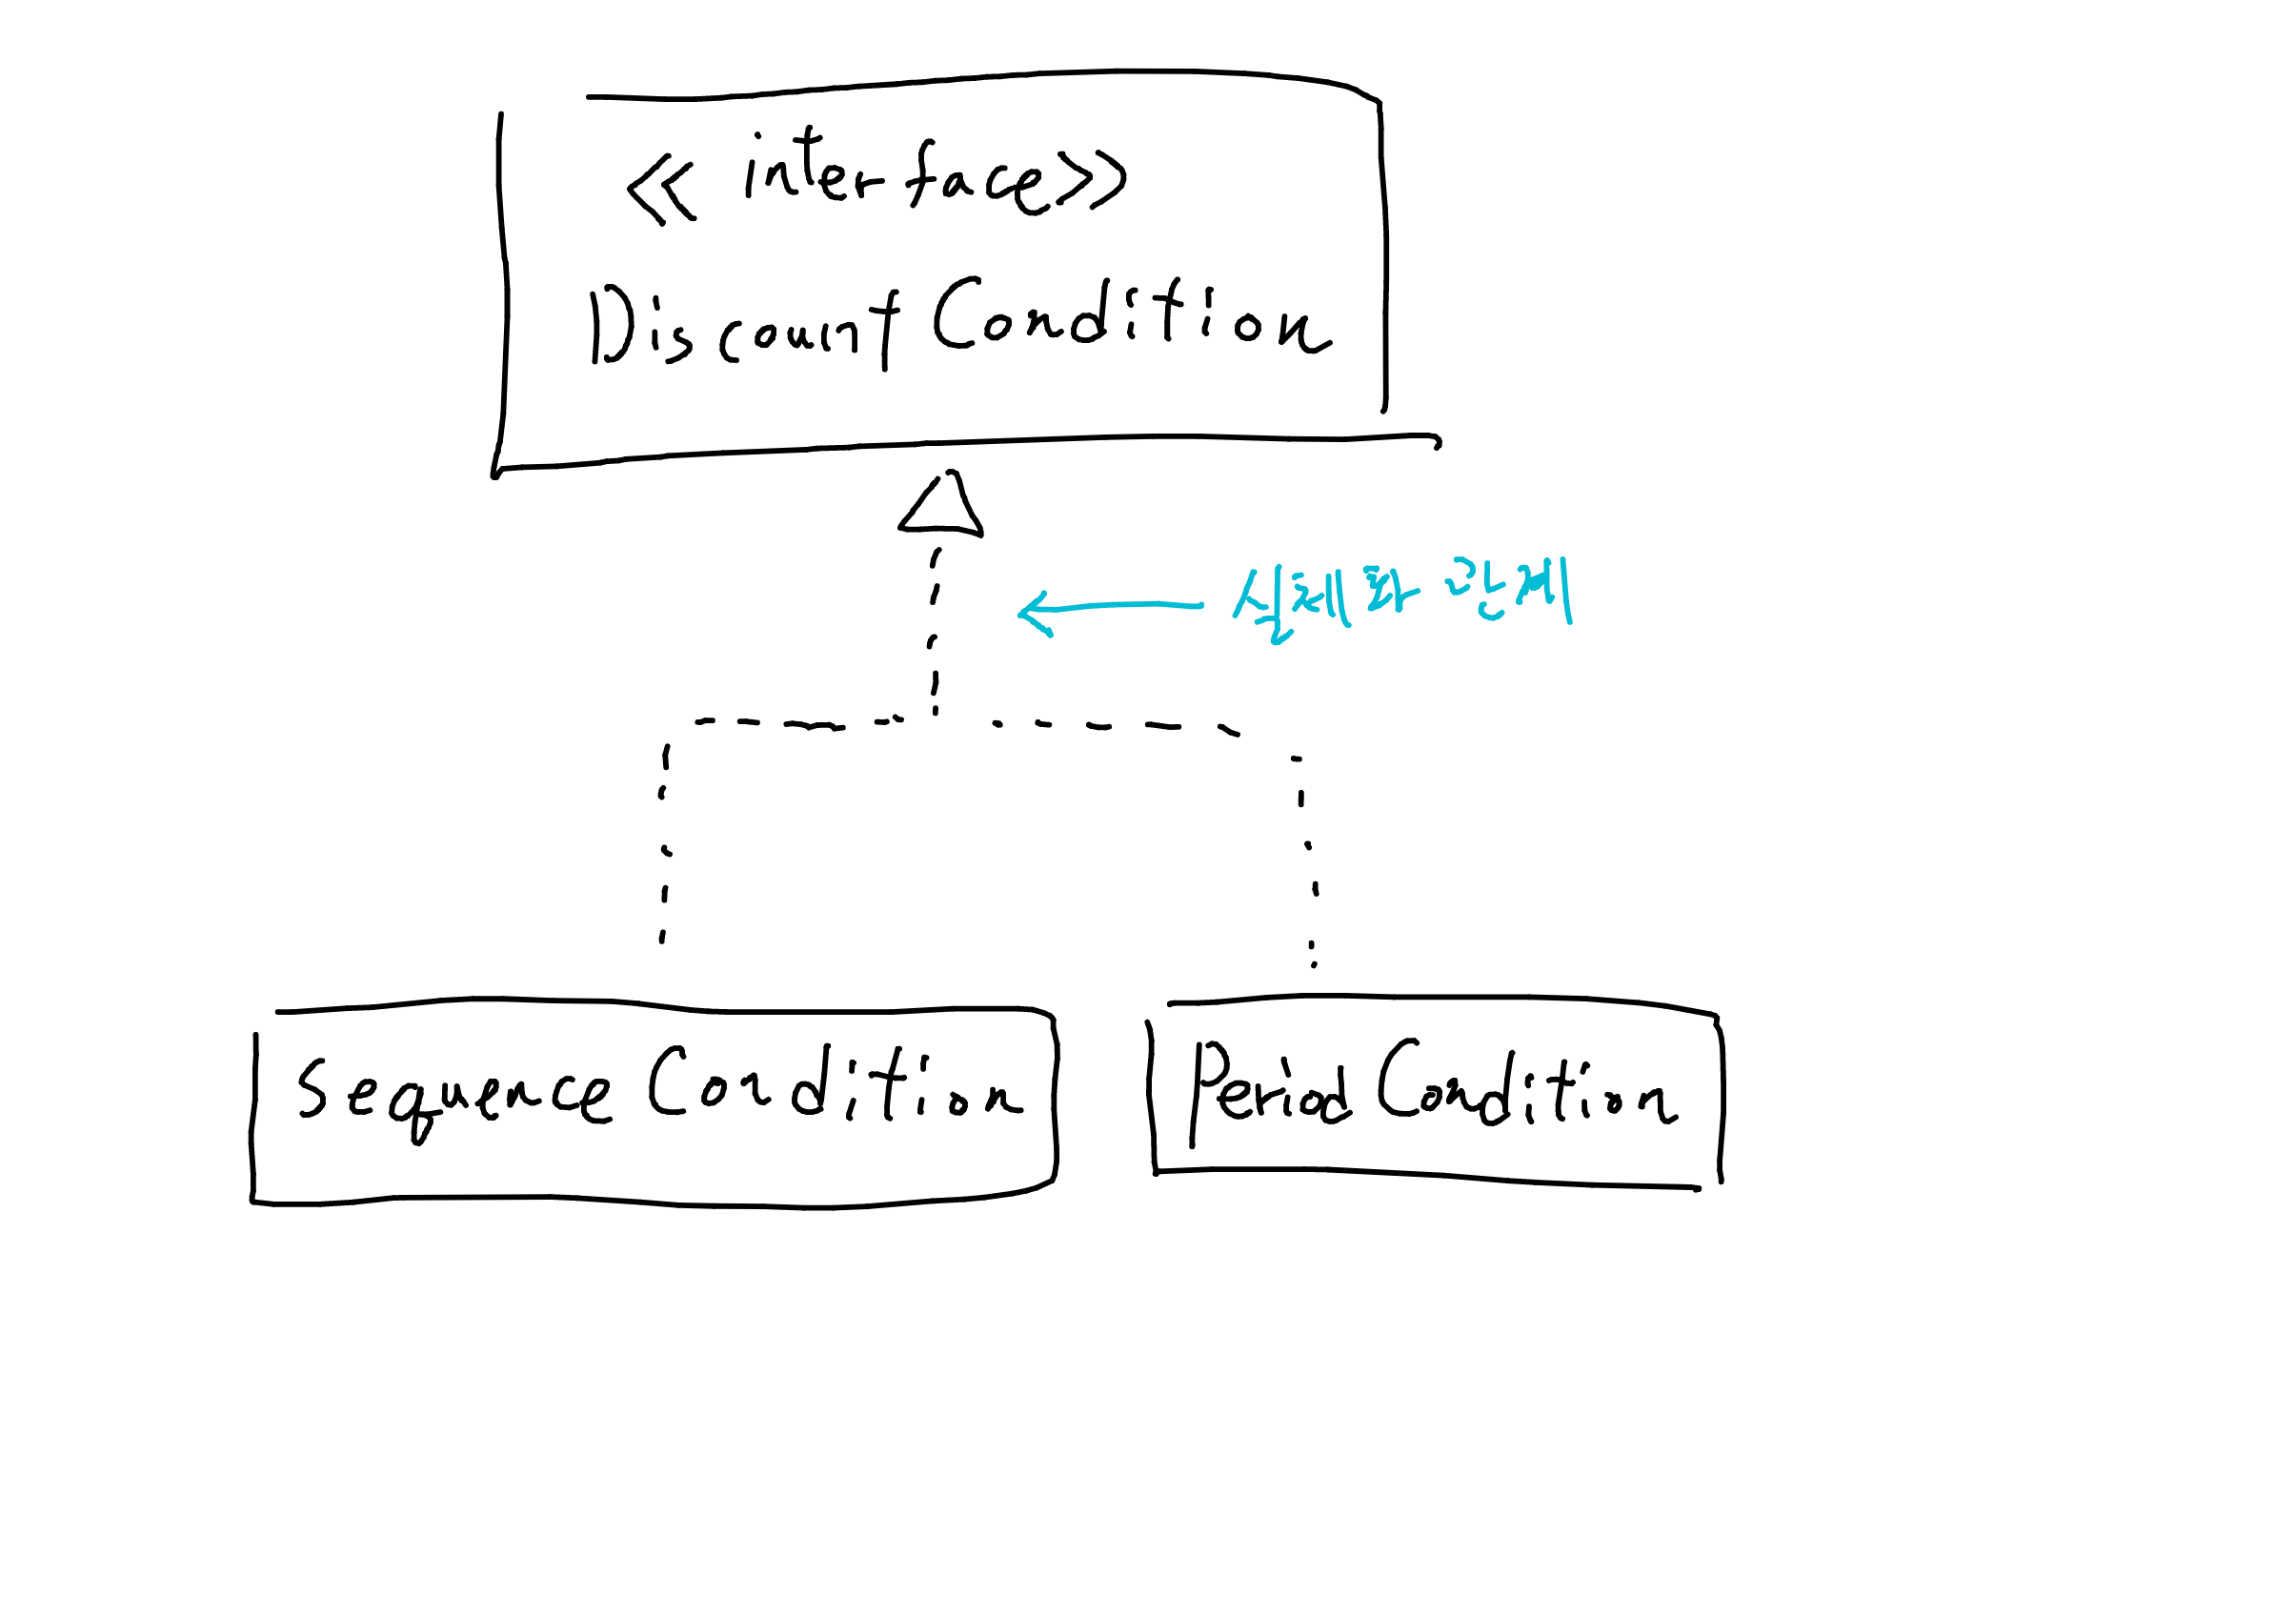 << interface >>
DiscountCondition
실체화 관계
SequenceCondition
PeriodCondition